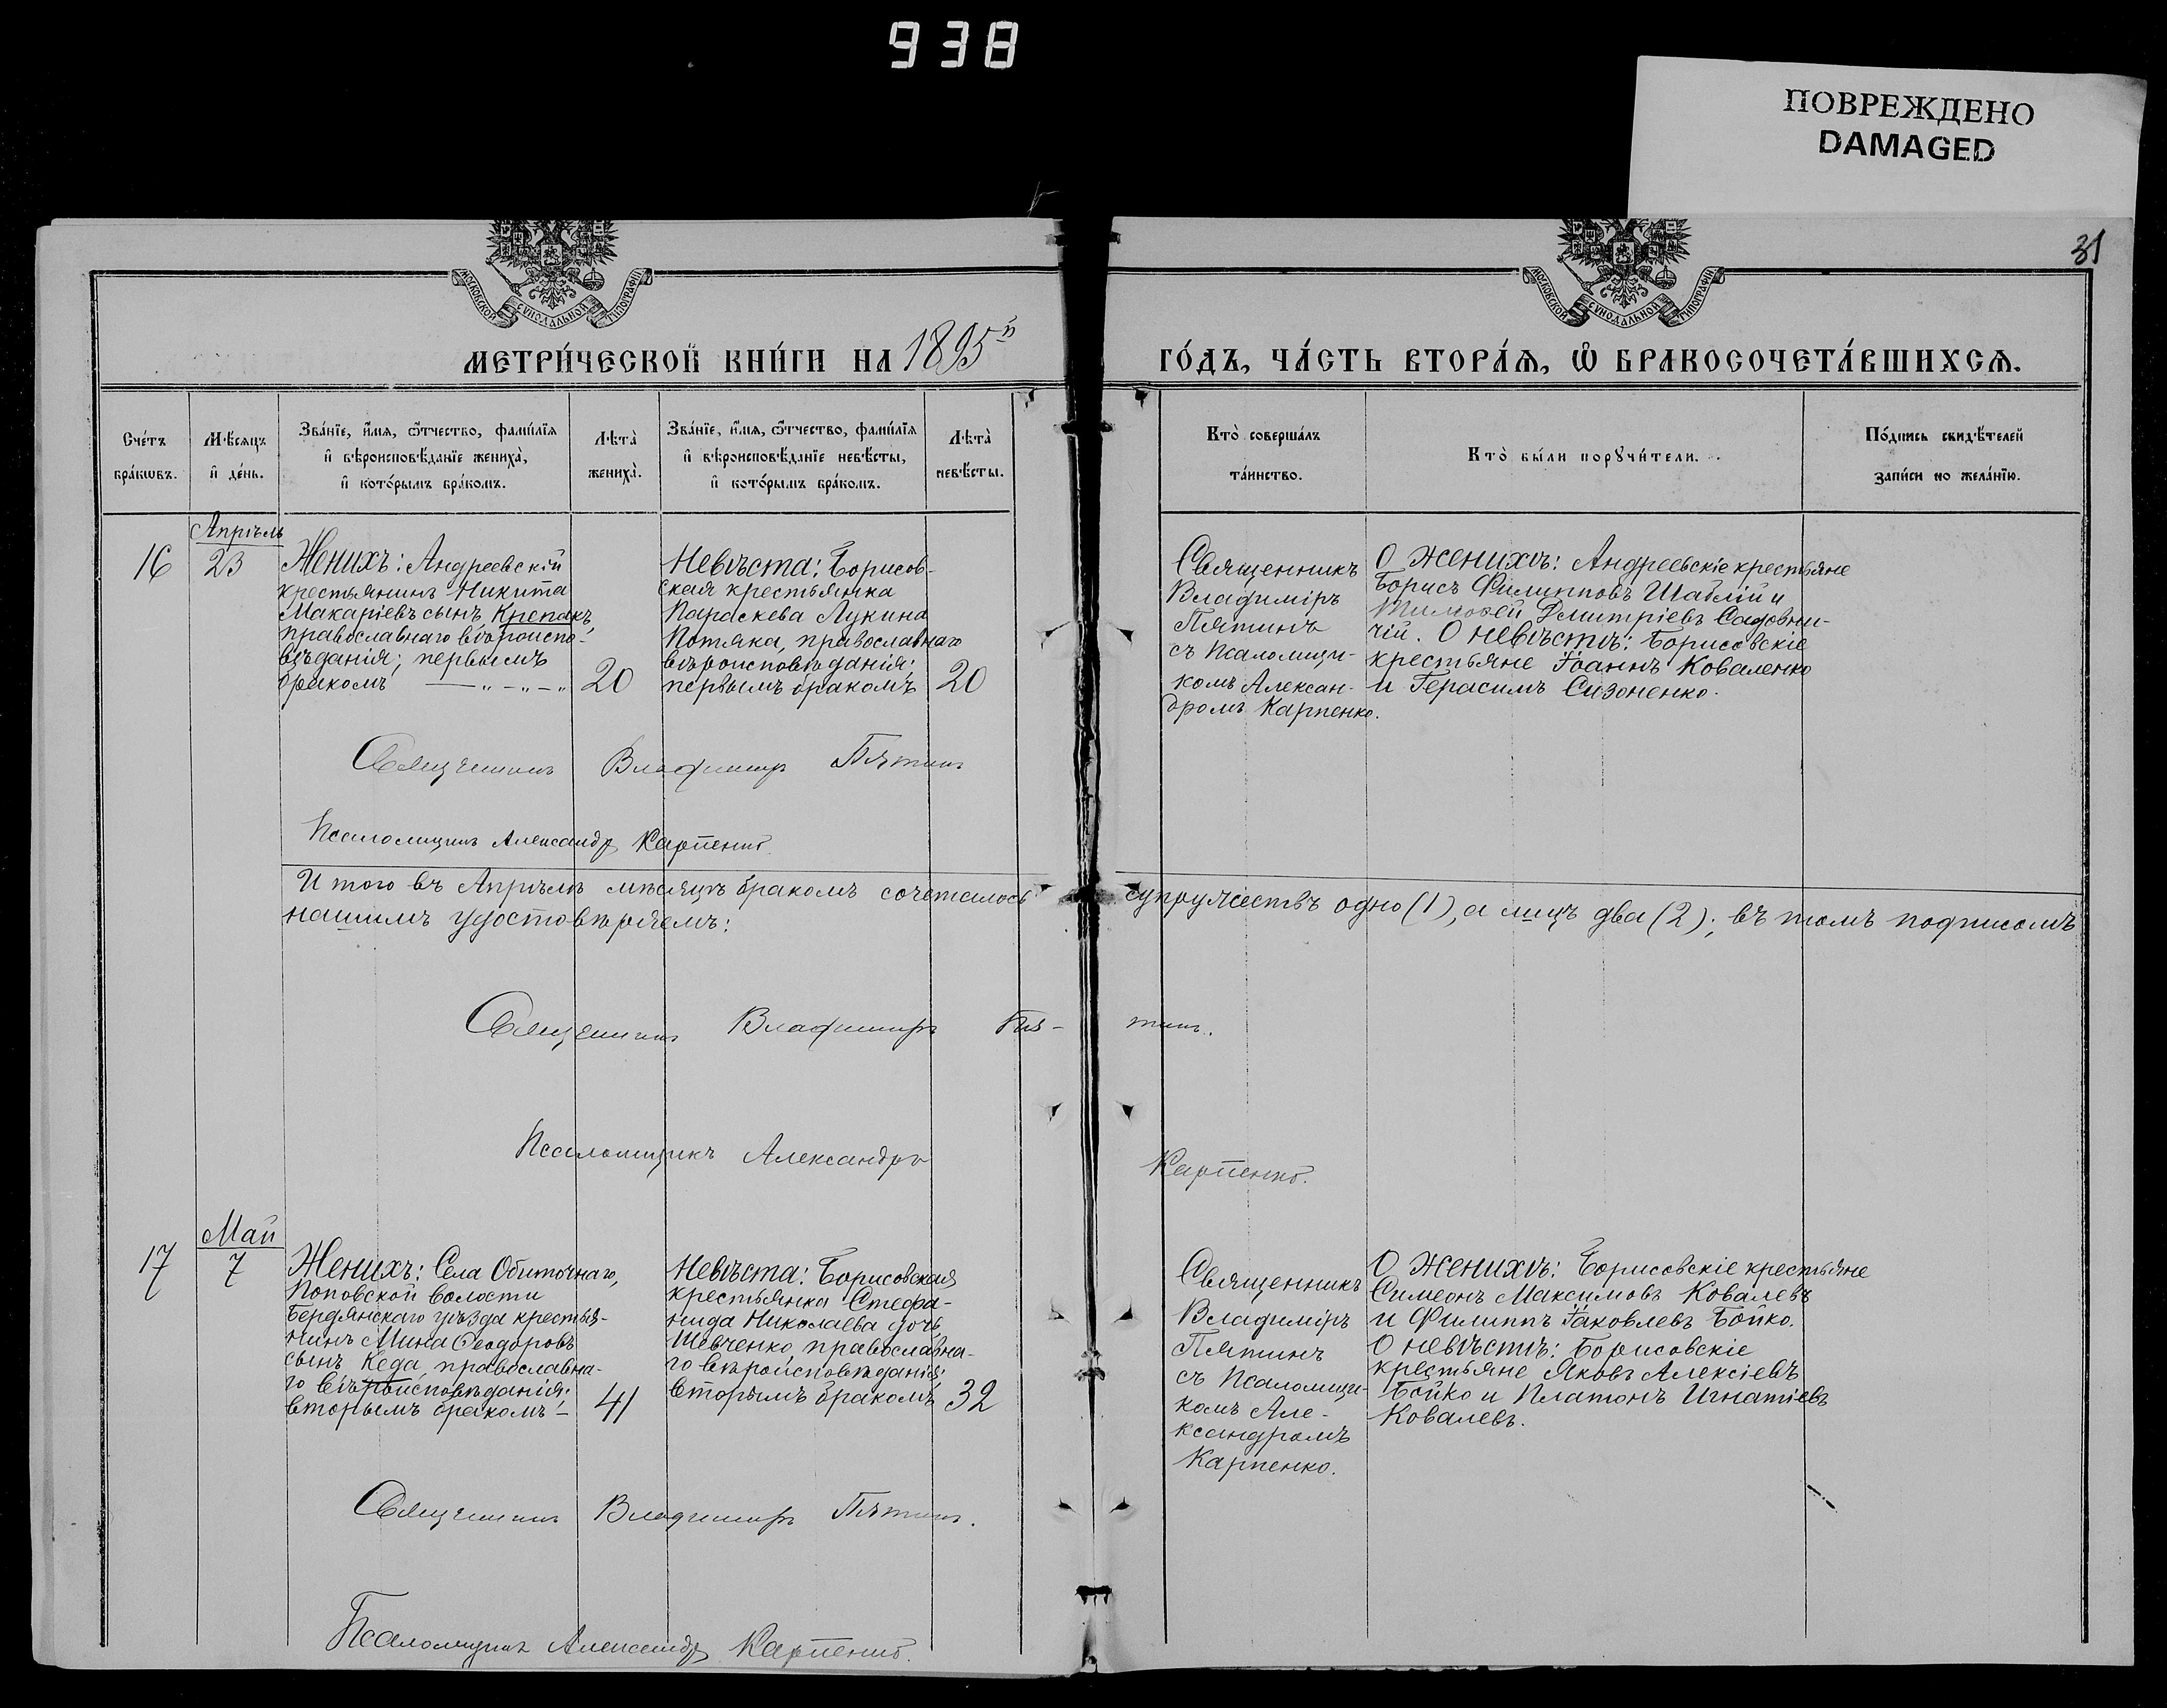 938
ПОВРЕЖДЕНО
DAMAGED
31
МОСКОВСКОЙ СѴНОДАЛЬНОЙ ТИПОГРАФІИ
МОСКОВСКОЙ СѴНОДАЛЬНОЙ ТИПОГРАФІИ
МЕТРИ́ЧЕСКОЙ КНИ́ГИ НА 1895й
ГО́ДЪ, ЧА́СТЬ ВТОРА́Ѧ, Ѡ҆ БРАКОСОЧЕТА́ВШИХСѦ.
Сче́тъ
бра́кѡвъ.
Мѣ́сяцъ
и҆ де́нь.
Зва́нїе, и҆́мя, ѻ҆́тчество, фами́лїя
и҆ вѣроисповѣ́данїе жениха̀,
и҆ кото́рымъ бра́комъ.
Лѣта̀
жениха̀.
Зва́нїе, и҆́мя, ѻ҆́тчество, фами́лїя
и҆ вѣроисповѣ́данїе невѣ́сты,
и҆ кото́рымъ бра́комъ.
Лѣта̀
невѣ́сты.
Кто̀ соверша́лъ
та́инство.
Кто̀ бы́ли порꙋчи́тели.
По́дпись свидѣ́телей
за́писи по жела́нїю.
Апрѣль
16
23
Женихъ: Андреевскій
крестьянинъ Никита
Макаріевъ сынъ Крепакъ,
православнаго вѣроиспо-
вѣданія; первымъ
бракомъ — „ – „ – „
20
Невѣста: Борисов-
ская крестьянка
Параскева Лукина
Потяка, православнаго
вѣроисповѣданія;
первымъ бракомъ
20
Священникъ
Владиміръ
Пятинъ
съ псаломщи-
комъ Алексан-
дромъ Карпенко.
О женихѣ: Андреевскіе крестьяне
Борисъ Филипповъ Шаблій и
Тимоѳей Дмитріевъ Садовни-
чій. О невѣстѣ: Борисовскіе
крестьяне Іоаннъ Коваленко
и Герасимъ Сизоненко.
Священникъ Владиміръ Пятинъ
Псаломщикъ Александръ Карпенко
И того въ Апрѣлѣ мѣсяцѣ бракомъ сочеталось супружествъ одно (1), а лицъ два (2); въ томъ подписомъ
нашимъ удостовѣряемъ:
Священникъ Владиміръ Пя- тинъ.
Псаломщикъ Александръ Карпенко.
Май
17
7
Женихъ: Села Обиточнаго,
Поповской волости
Бердянскаго уѣзда крестья-
нинъ Мина Ѳеодоровъ
сынъ Кеда, православна-
го вѣроисповѣданія;
вторымъ бракомъ –
41
Невѣста: Борисовская
крестьянка Стефа-
нида Николаева дочь
Шевченко, православна-
го вѣроисповѣданія;
вторымъ бракомъ
32
Священникъ
Владиміръ
Пятинъ
съ псаломщи-
комъ Але-
ксандромъ
Карпенко.
О женихѣ: Борисовскіе крестьяне
Симеонъ Максимовъ Ковалевъ
и Филиппъ Іаковлевъ Бойко.
О невѣстѣ: Борисовскіе
крестьяне Яковъ Алексіевъ
Бойко и Платонъ Игнатіевъ
Ковалевъ.
Священникъ Владиміръ Пятинъ.
Псаломщикъ Александръ Карпенко.